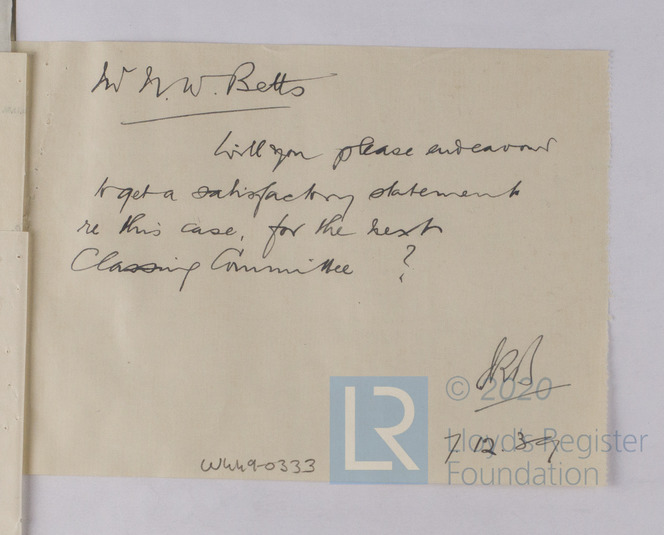 Mr N. W. Betts
Will you please endeavour
to get a satisfactory statement
re this case, for the next
Classing Committee ?
© 2020
7.12.39
Lloyd's Register
Foundation
LR
W449-0333